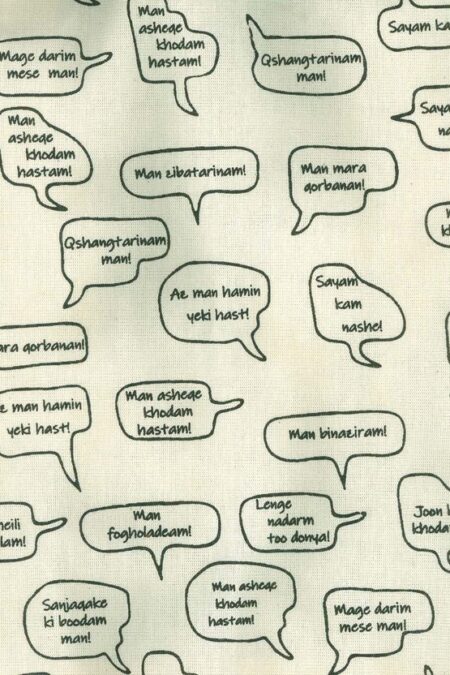 Man
asheqe
khodam
hastam!
Sayam ka
Mage darim
mese man!
Qshangtarinam
man!
Man
asheqe
khodam
hastam!
Saya
na
Man zibatarinam!
Man mara
qorbanan!
Qshangtarinam
man!
Az man hamin
yeki hast!
Sayam
kam
nashe!
ara qorbanan!
z man hamin
yeki hast!
Man asheqe
khodam
hastam!
Man binaziram!
heili
lam!
Man
fogholadeam!
Lenge
nadarm
too donya!
Joon
khoda
Sanjaqake
ki boodam
man!
Man asheqe
khodam
hastam!
Mage darim
mese man!